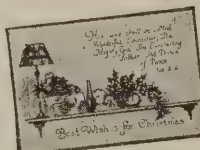 His name shall be called
Wonderful Counsellor, The
Mighty God, The Everlasting
Father, The Prince
of Peace
Best Wishes for Christmas